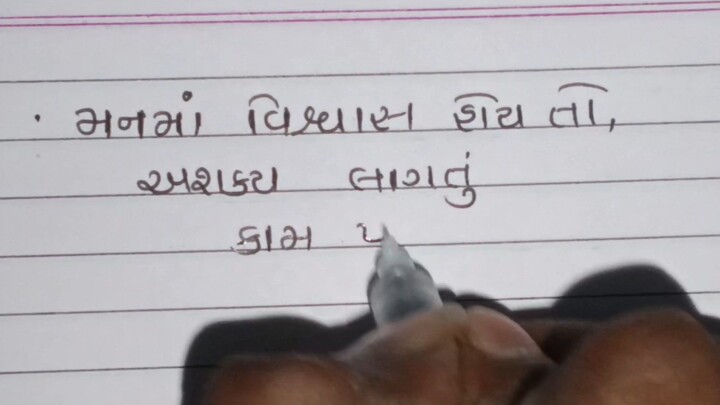 • મનમાં વિશ્વાસ હોય તો,
અશક્ય લાગતું
કામ